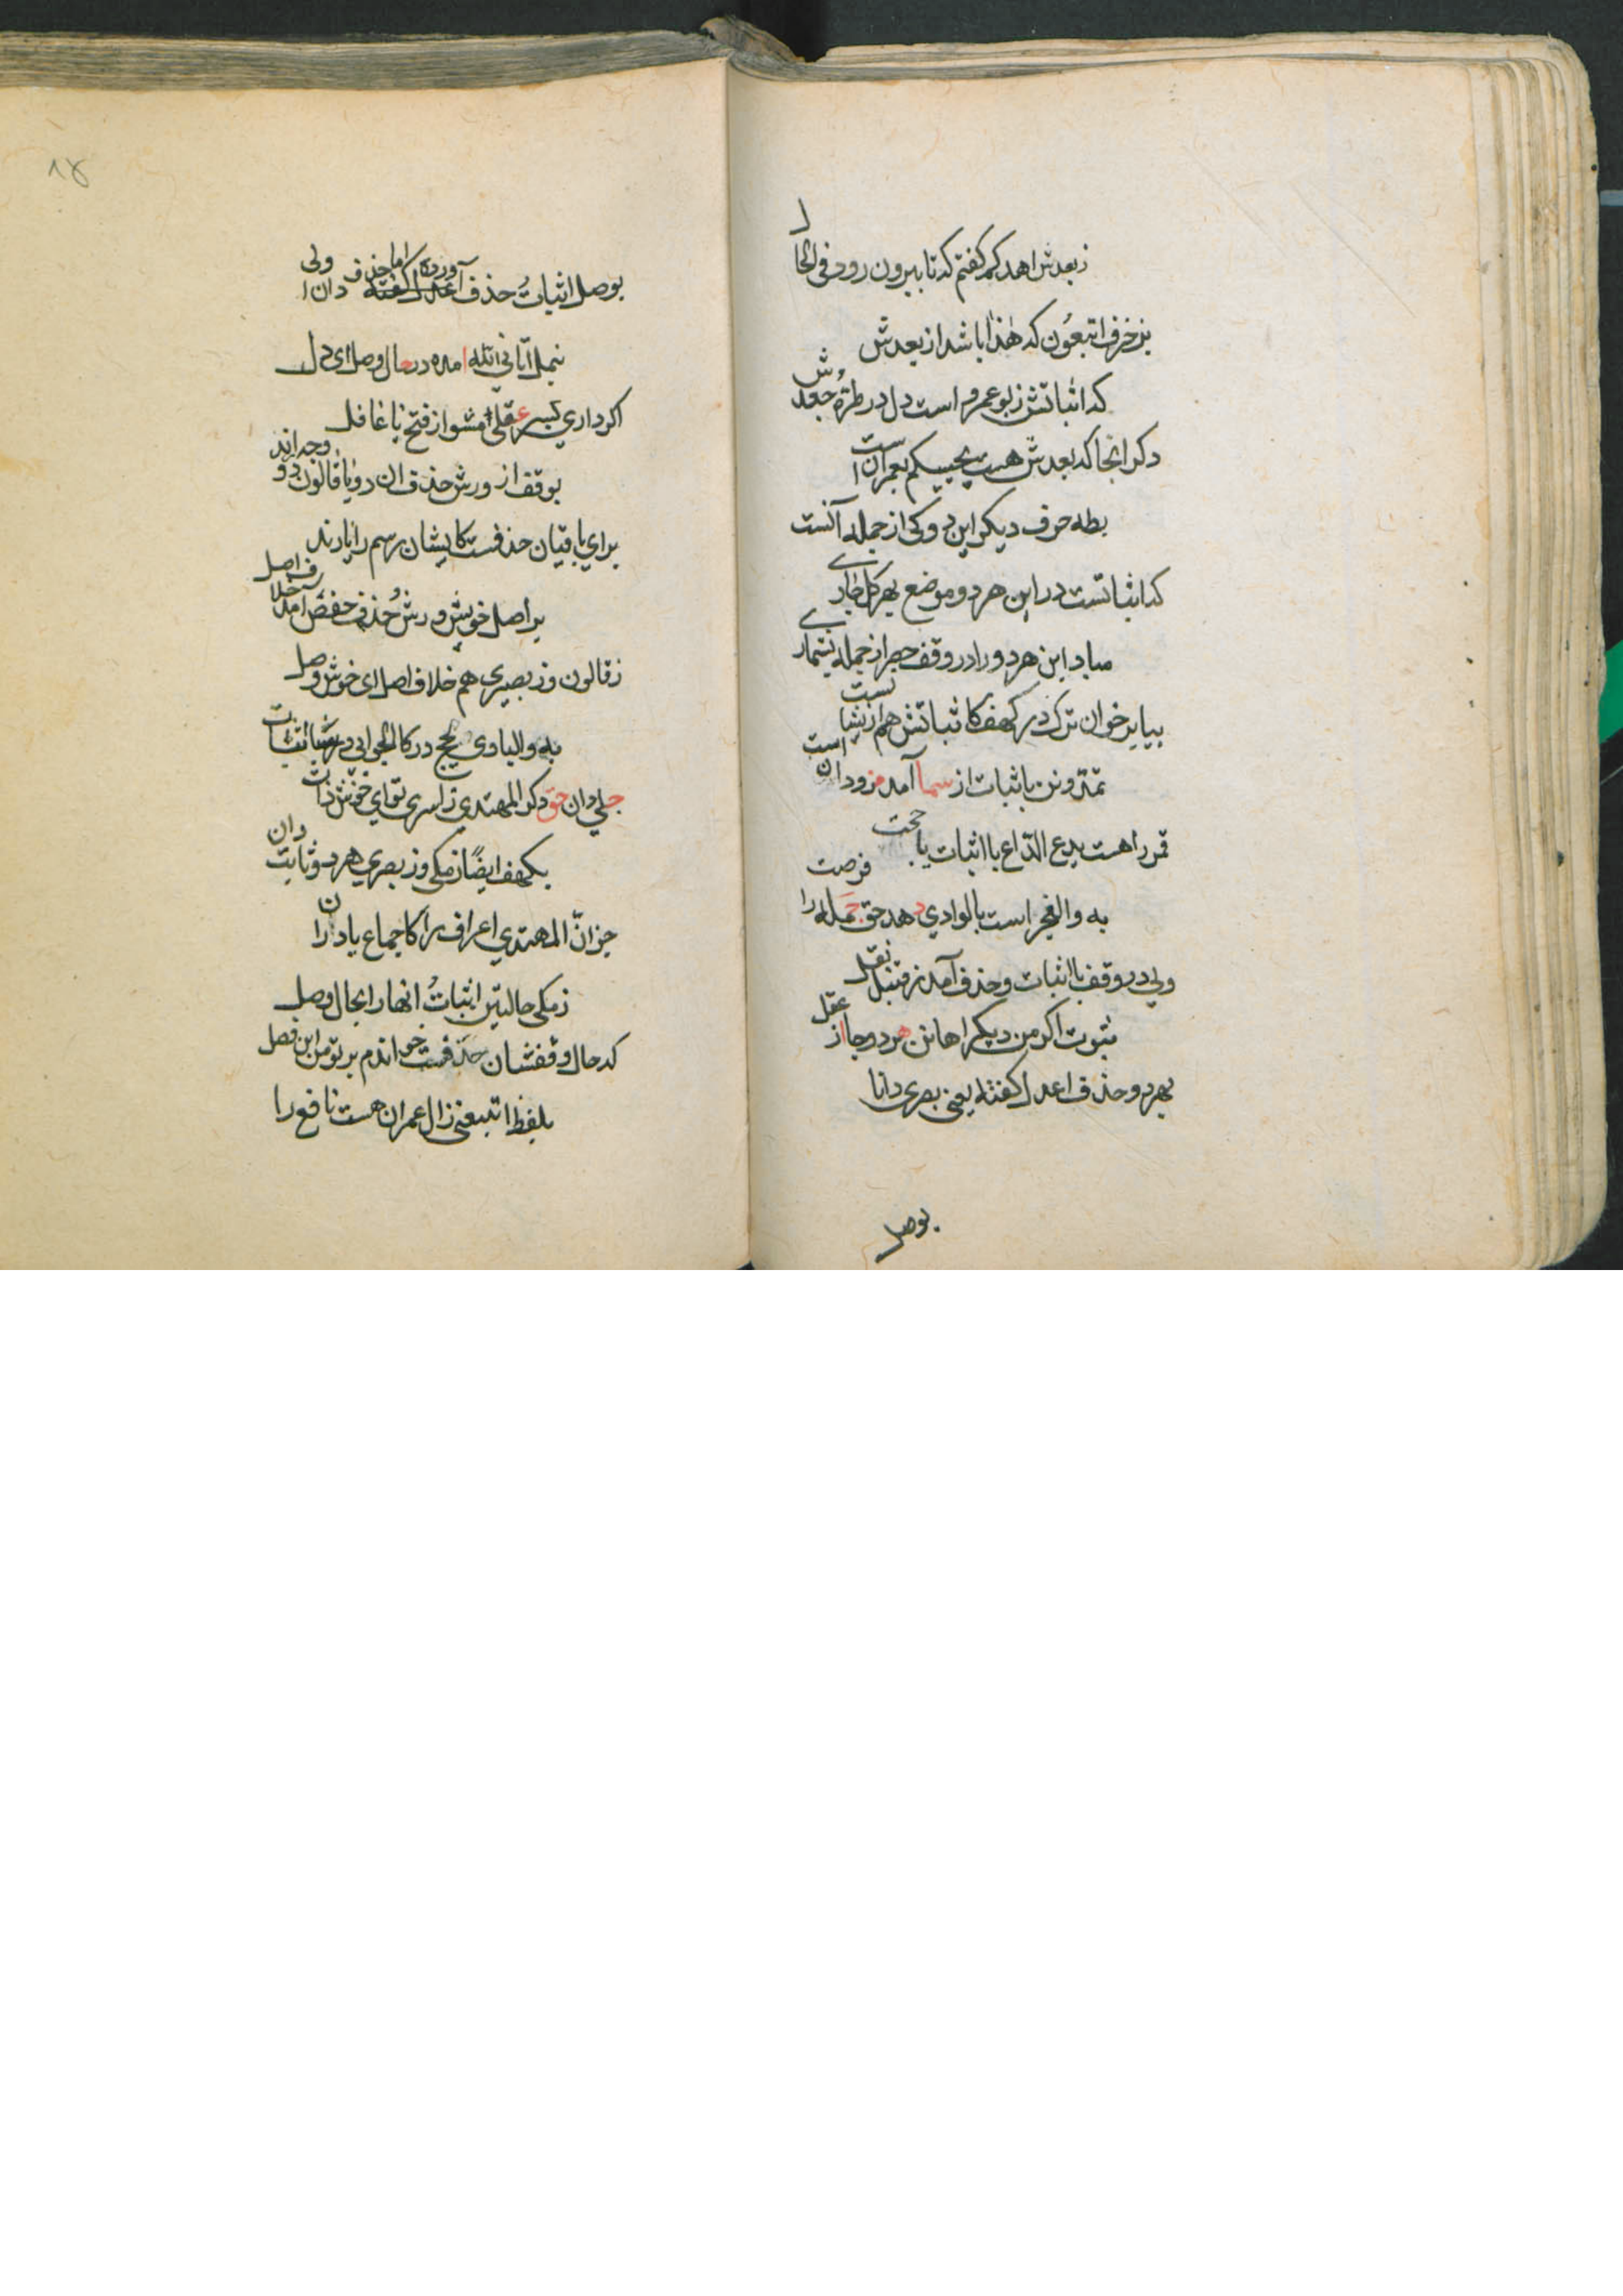 زبعدش اهدکم کفتم که تا بیرون رود فی الحال
بزخرف اتبعون که هذا باشد از بعدش
که اثباتش زبو عمرو است دل در طرۀ جعدش
دکر انجا که بعدش هست یحببکم بعمران است
بطه حرف دیکر این دو کی از جمله آنست
که اثباتست در این هر دو موضع بهر کل جاری
مباد این هر دو را در وقف جز از جمله بشماری
بیا برخوان ترن در کهف کاثباتش هم از
تمدونن با اثبات از سما آمد
قمر را هست یدع الداع با اثبات یا حجت
به والفجر است بالوادی دهد حق جمله را فرصت
ولی در وقف با اثبات وحذف آمد ز قنبل نقل
ثبوت اکرمن دیکر اهانن هر دو جا از عقل
بهر دو حذف اعدل کفته یعنی بصری دانا
بوصل
۱۸
بوصل اثبات حذف آورده اما حذف ولی دان
بنمل آتانی الله امده در حال وصل ای دل
اکر داری بسر عقلی مشو از فتح یا غافل
بوقف از ورش حذف ان دو یا قالون دو وجه اراند
برای باقیان حذفست کایشان رسم را یارند
بر اصل خویش ورش و حذف حفص آمد خلاف اصل
زقالون وز بصیری هم خلاف اصل ای خوش وصل
به والبادی بحج در کالجوابی در سبا اثبات
جلی دان حق دکر المهتدی زاسری تو ای خوش ذات
بکهف ایضا زمکی وز بصری هر دو ثابت دان
جز ان المهتدی اعراف را کاجماع یا دارا ن
زمکی حالتین اثبات انها را بحال وصل
که حال وقفشان حذفست خواندم بر تو من این فصل
بلفظ اتبعنی زال عمران هست نافع را